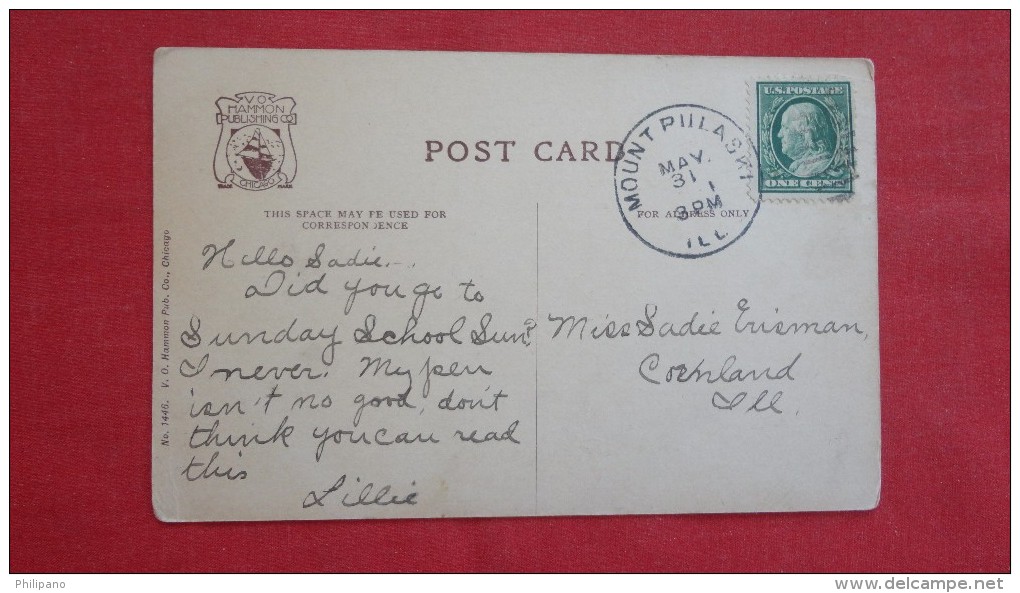 V O
HAMMON
PUBLISHING CO
CHICAGO
TRADE MARK
POST CARD
THIS SPACE MAY BE USED FOR
CORRESPONDENCE
FOR ADDRESS ONLY
U.S. POSTAGE
ONE CENT
MOUNT PULASKI
MAY.
31
3 PM
ILL.
No. 1446. V. O. Hammon Pub. Co., Chicago
Hello Sadie.-.
Did you go to
Sunday School Sun?
I never. My pen
isn't no good, don't
think you can read
this
Lillie
Miss Sadie Erisman,
Cornland
Ill.
Philipano
www.delcampe.net